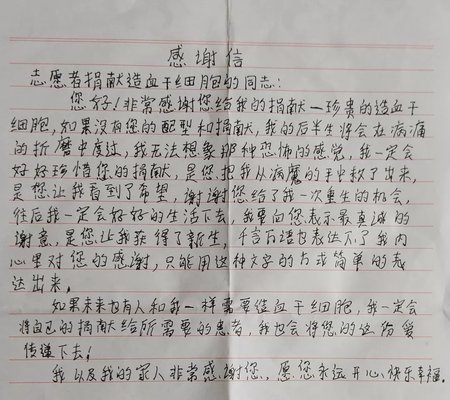 感谢信
志愿者捐献造血干细胞的同志:
您好!非常感谢您给我的捐献一珍贵的造血干
细胞,如果没有您的配型和捐献,我的后半生将会在病痛
的折磨中度过,我无法想象那种恐怖的感觉,我一定会
好好珍惜您的捐献,是您把我从病魔的手中救了出来,
是您让我看到了希望,谢谢您给了我一次重生的机会,
往后我一定会好好的生活下去,我要向您表示最真诚的
谢意,是您让我获得了新生,千言万语也表达不了我内
心里对您的感谢,只能用这种文字的方式简单的表
达出来,
如果未来也有人和我一样需要造血干细胞,我一定会
将自己的捐献给所需要的患者,我也会将您的这份爱
传递下去!
我以及我的家人非常感谢您,愿您永远开心快乐幸福。